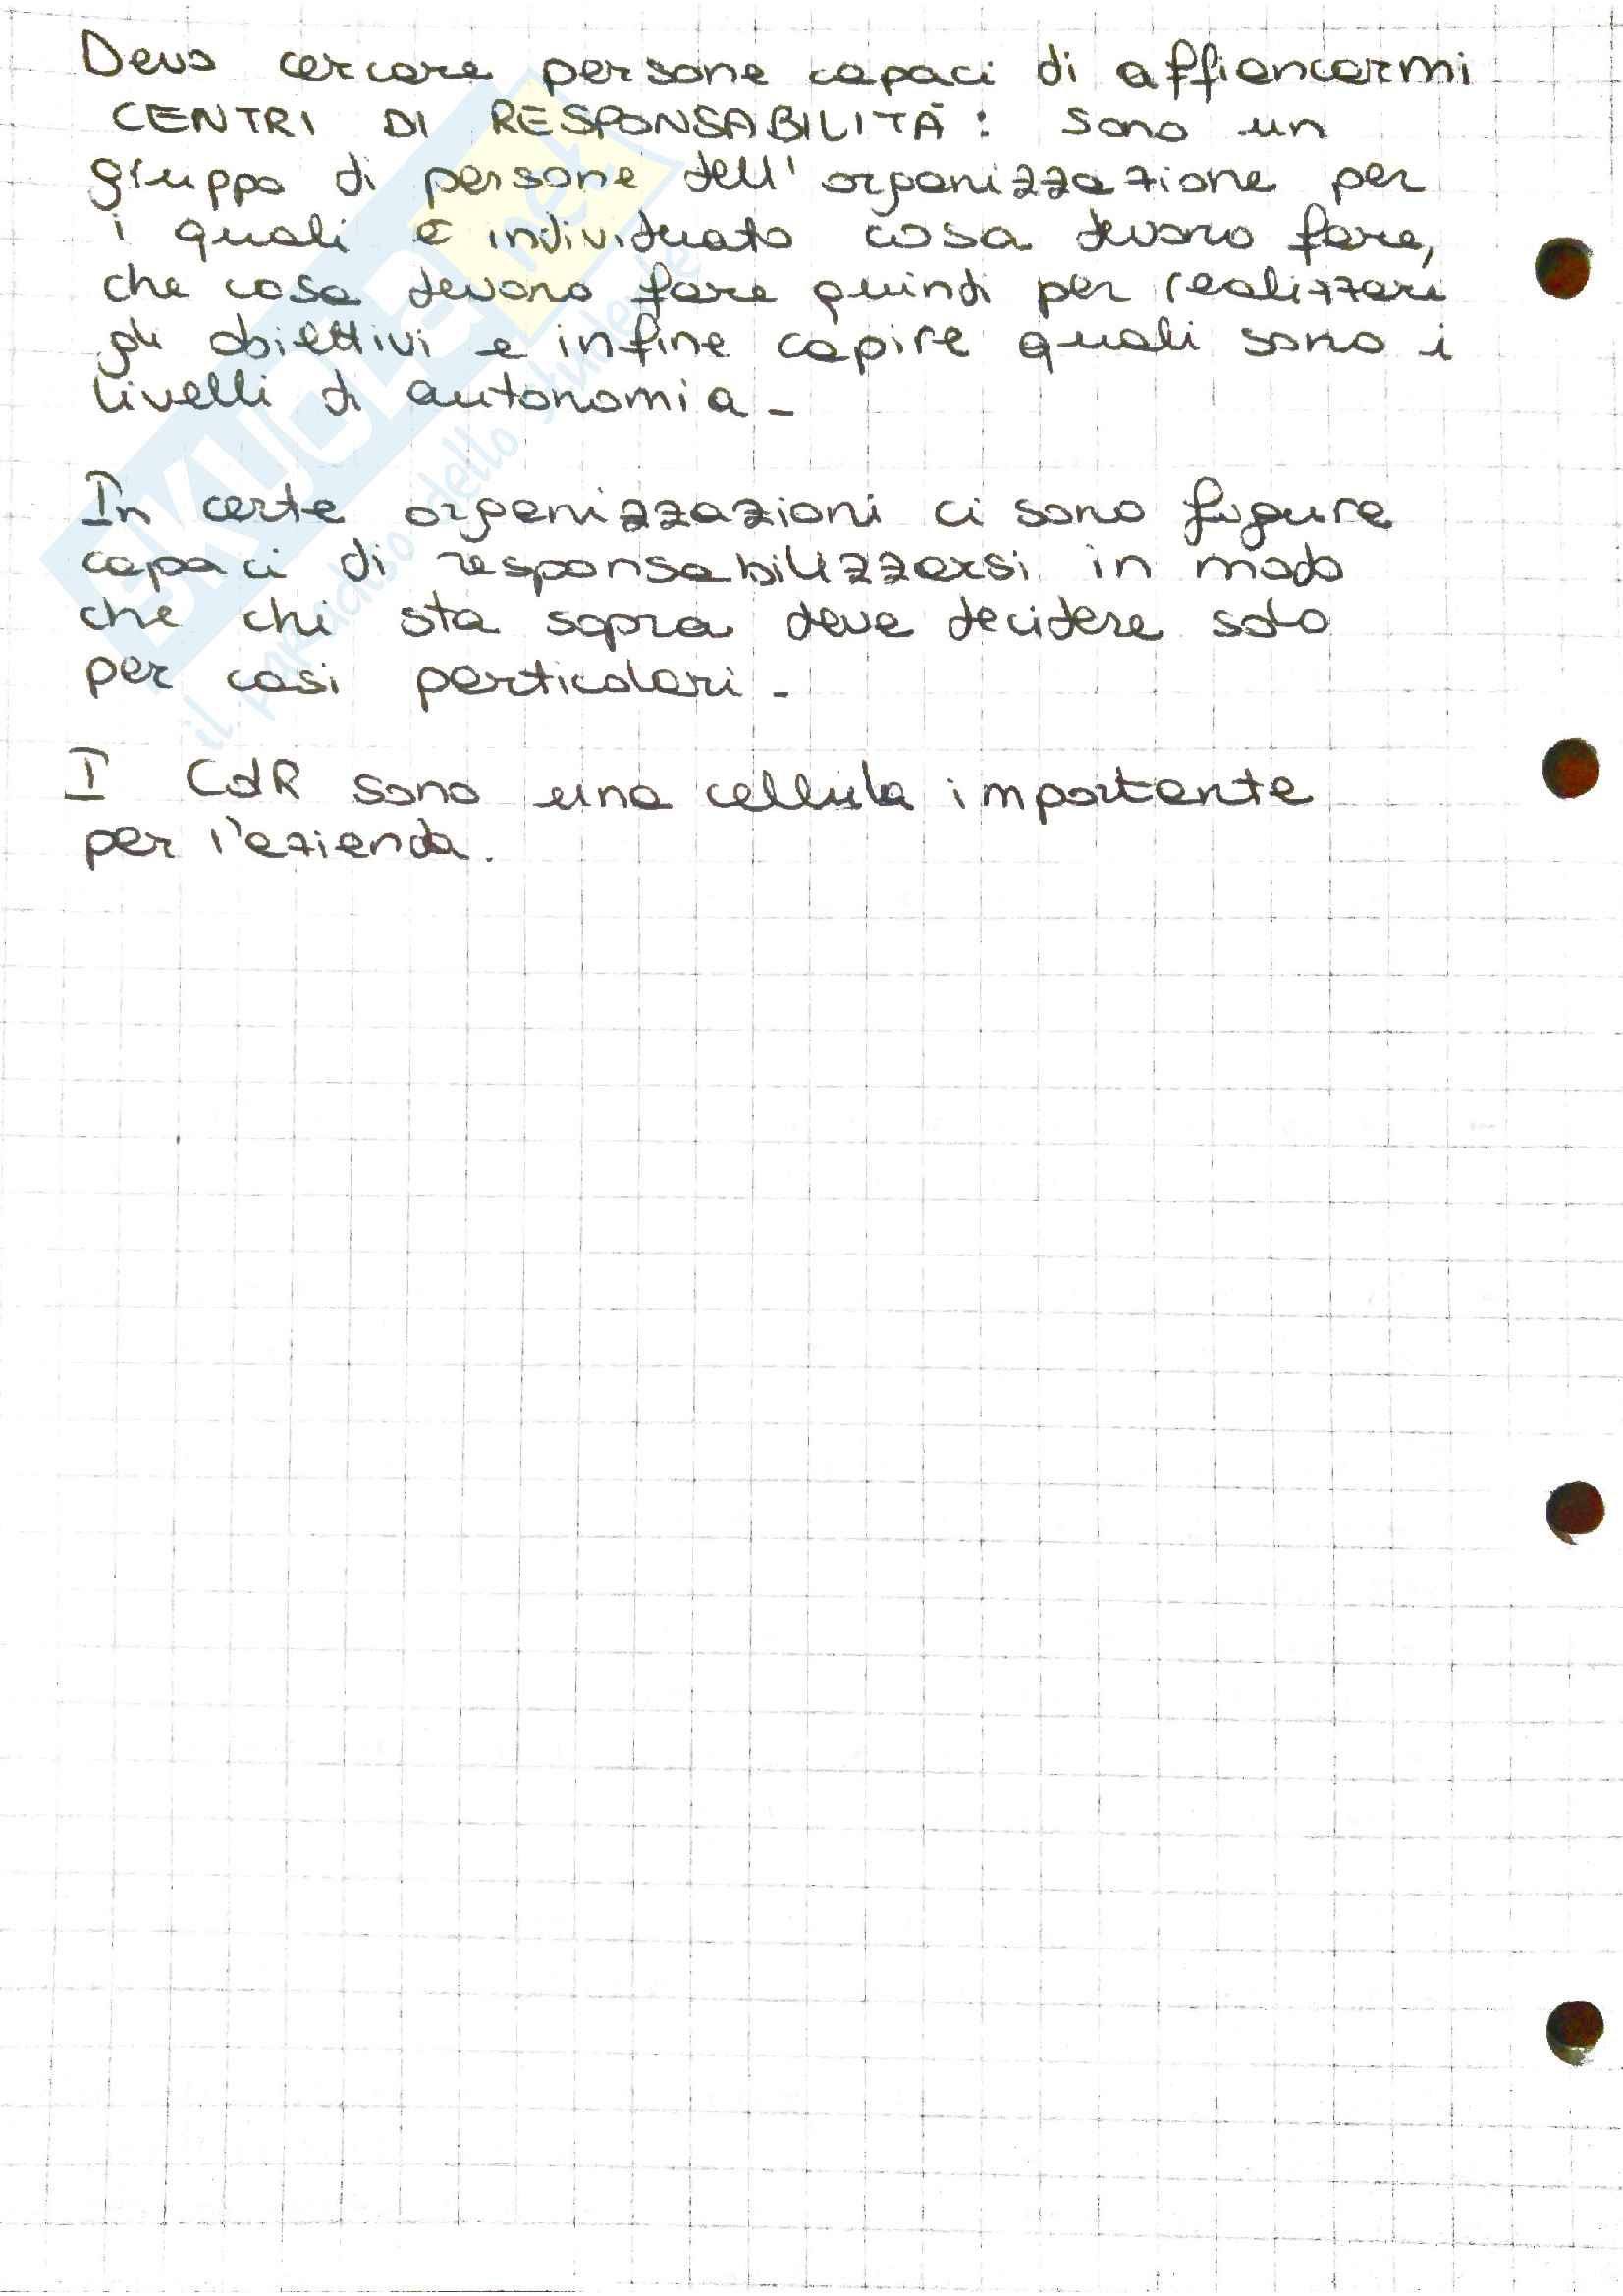 Devo cercare persone capaci di affiancarmi
CENTRI DI RESPONSABILITÀ: sono un
gruppo di persone dell'organizzazione per
i quali è individuato cosa devono fare,
che cosa devono fare quindi per realizzare
gli obiettivi e infine capire quali sono i
livelli di autonomia-
In certe organizzazioni ci sono figure
capaci di responsabilizzarsi in modo
che chi sta sopra deve decidere solo
per casi particolari-
I CdR sono una cellula importante
per l'azienda.
SKUOLA.net
il paradiso dello studente